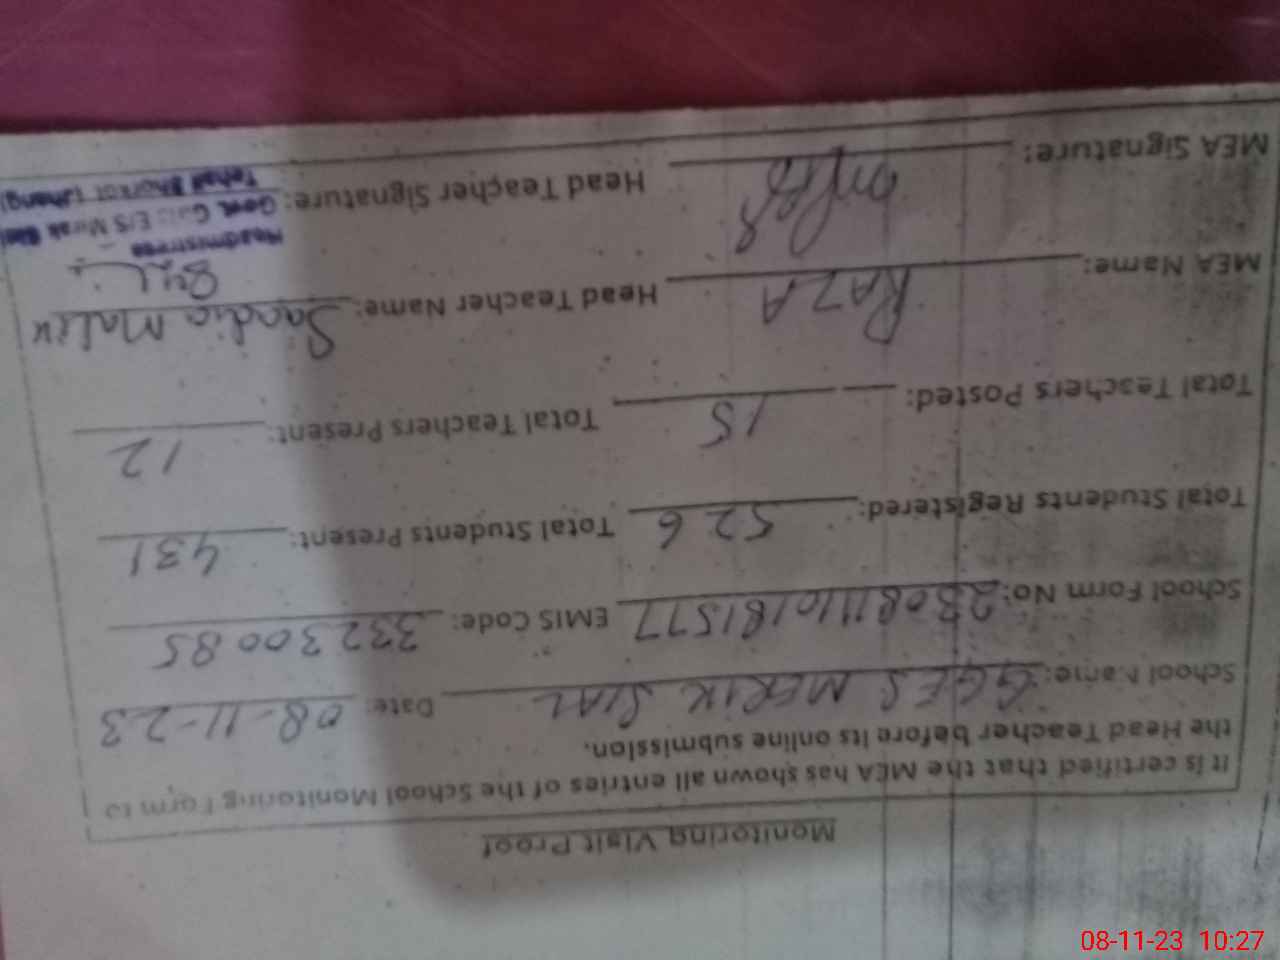 Monitoring Visit Proof
It is certified that the MEA has shown all entries of the School Monitoring Form to
the Head Teacher before its online submission.
School Name: GGES MERIK SIAL Date: 08-11-23
School Form No: 23081110181577 EMIS Code: 33230085
Total Students Registered: 526 Total Students Present: 431
Total Teachers Posted: 15 Total Teachers Present: 12
MEA Name: RAZA Head Teacher Name: Saadia Malik
MEA Signature: Head Teacher Signature:
Headmistress
Govt. Girls E/S Mirak Sial
Tehsil Shorkot (Jhang)
08-11-23 10:27